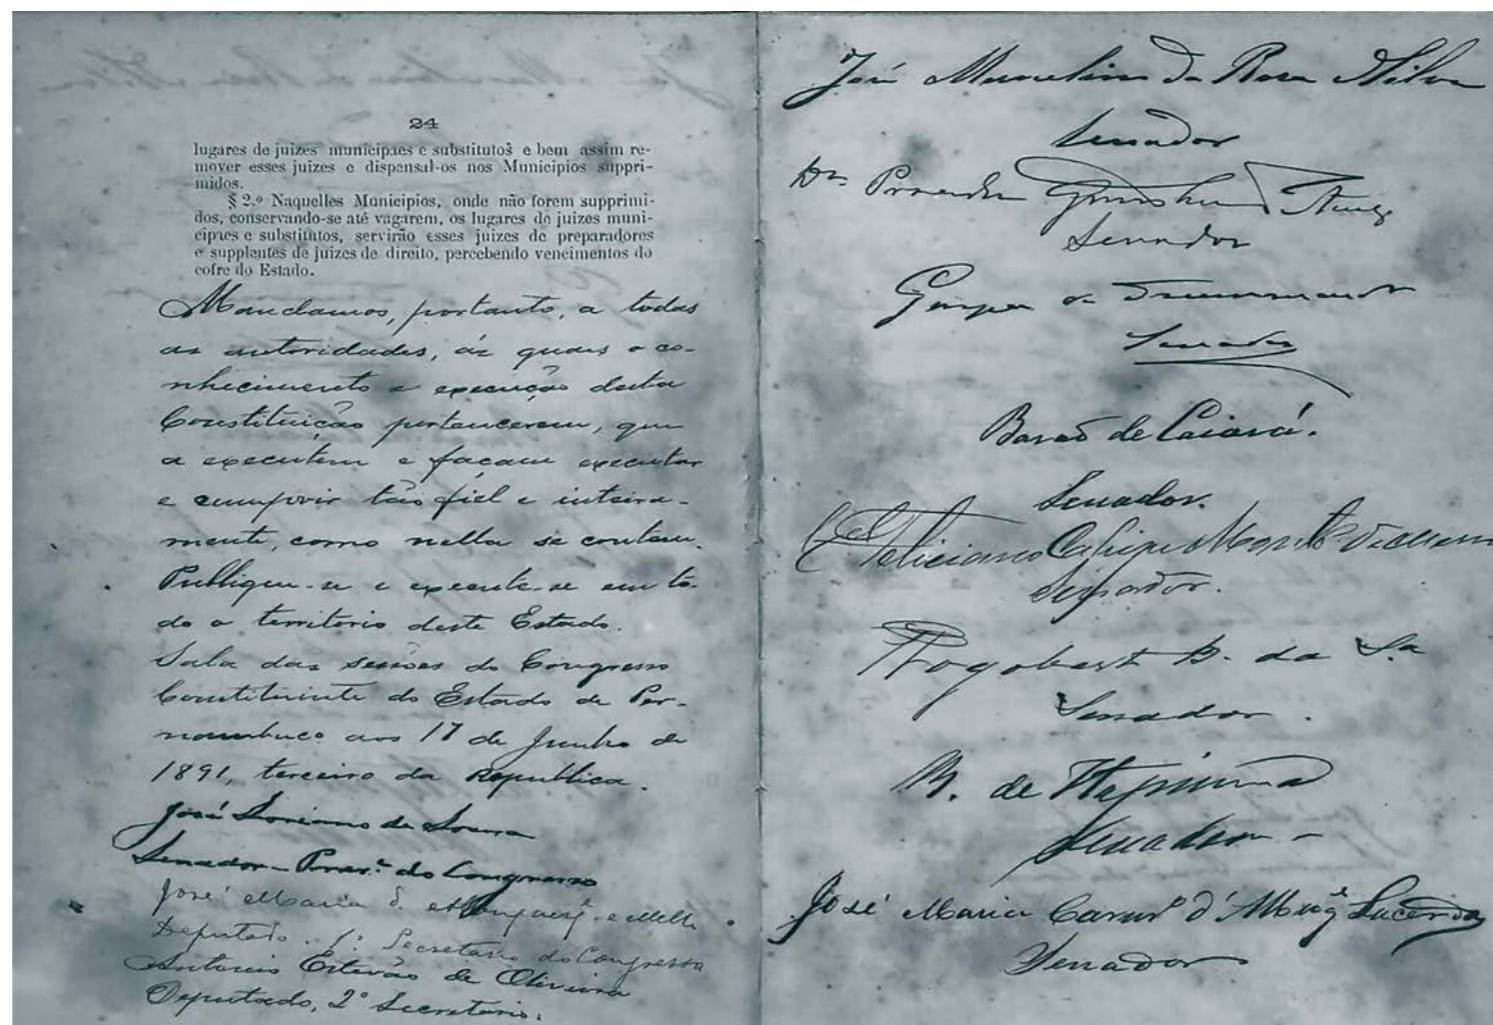 24
lugares de juizes municipaes e substitutos e bem assim re-
mover esses juizes e dispensal-os nos Municipios suppri-
midos.
§ 2.º Naquelles Municipios, onde não forem supprimi-
dos, conservando-se até vagarem, os lugares de juizes muni-
cipaes e substitutos, servirão esses juizes de preparadores
e supplentes de juizes de direito, percebendo vencimentos do
cofre do Estado.
Mandamos, portanto, a todas
as autoridades, ás quaes o co-
nhecimento e execução desta
Constituição pertencerem, que
a executem e façam executar
e cumprir tão fiel e inteira-
mente, como nella se contem.
Publique-se e execute-se em to-
do o territorio deste Estado.
Sala das sessões do Congresso
Constituinte do Estado de Per-
nambuco aos 17 de Junho de
1891, terceiro da Republica.
José Soriano de Souza
Senador - Presᵉ do Congresso
José Maria d. e Mello
Deputado. 1º Secretario do Congresso
Antonio Estevão de Oliveira
Deputado, 2º Secretario.
José Marcelino da Rosa e Silva
Senador
Dr.
Senador
Gaspar de Drummond
Senador
Barão de Caiará.
Senador.
Feliciano
Senador.
da Sa
Senador.
B. de Itapissuma
Senador
José Maria d'Albuqᵉ Lacerda
Senador